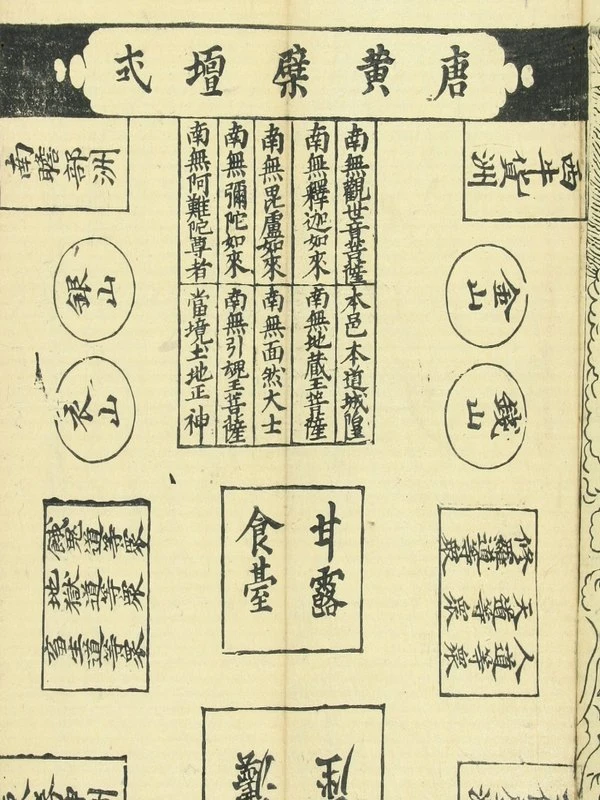 唐黃檗壇式
西牛貨洲
南無觀世音菩薩
南無釋迦如來
南無毘盧如來
南無彌陀如來
南無阿難陀尊者
本邑本道城隍
南無地藏王菩薩
南無面然大士
南無引魂王菩薩
當境土地正神
南瞻部洲
金山
錢山
銀山
衣山
甘露
食臺
修羅道等衆
天道等衆
人道等衆
餓鬼道等衆
地獄道等衆
畜生道等衆